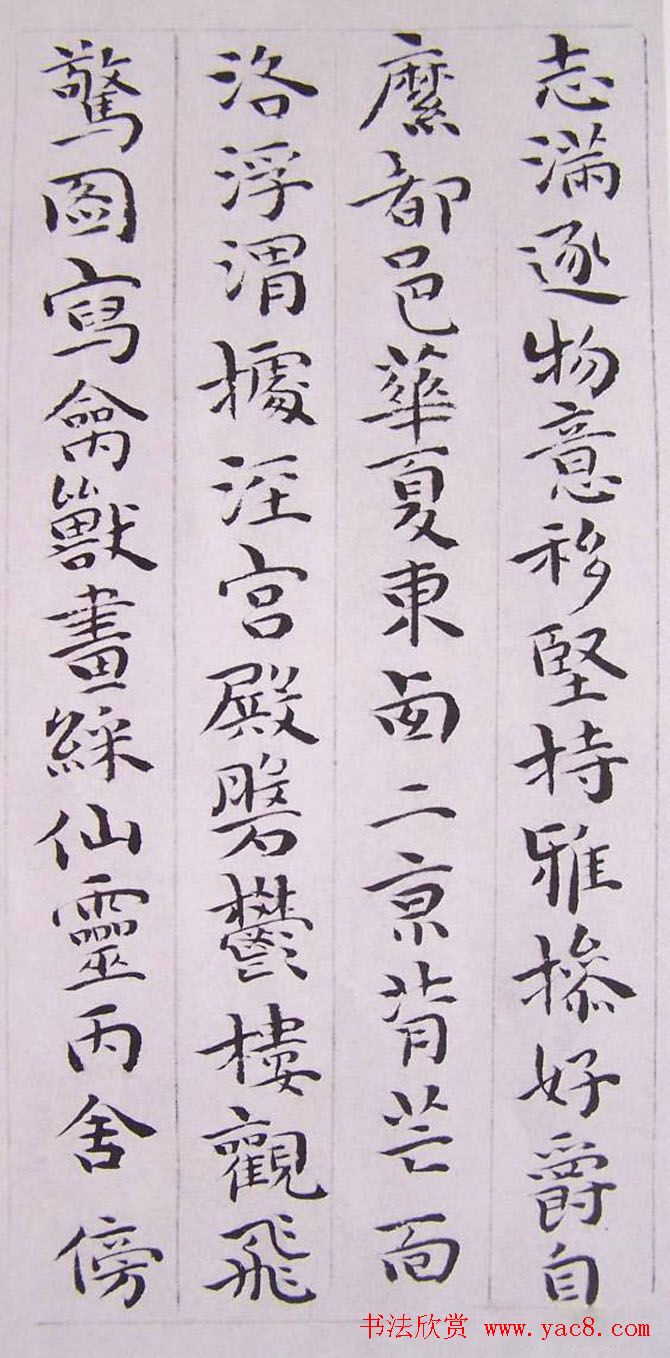 志滿逐物意移堅持雅操好爵自
縻都邑華夏東西二京背芒面
洛浮渭據涇宮殿盤鬱樓觀飛
驚圖寫禽獸畫綵仙靈丙舍傍
书法欣赏 www.yac8.com